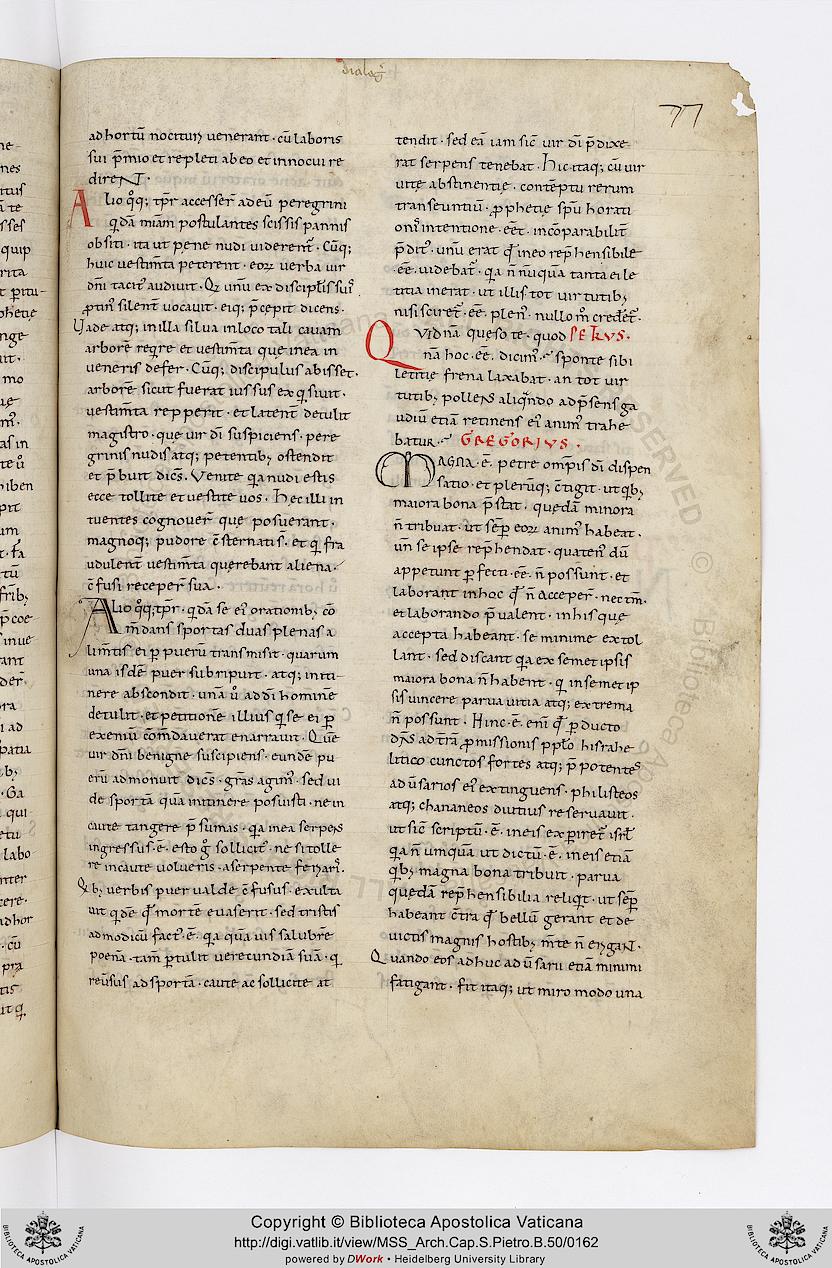 dialog̅
77
ad hortū nocituri venerant · cū laboris
sui p̄mio et repleti ab eo et innocui re
direNT ·
Alio q̊q; tp̄r accesser̄ ad eū peregrini
qdā miām postulantes scissis pannis
obsiti · ita ut pene nudi viderent̄ · Cūq;
huic vestim̄ta peterent · eoꝝ verba vir
dn̄i tacit' audivit · Qi unū ex discipl̄is sui'
ꝓtin' silent̄ vocavit · eiq; p̄cepit dicens ·
Vade atq; in illa silva in loco tali cavam
arborē reqre et vestim̄ta que in ea in
veneris defer · Cūq; discipulus abisset ·
arborē sicut fuerat iussus exqsivit ·
vestim̄ta repperit · et latent̄ detulit
magistro · que vir dī suspiciens · pere
grinis nudis atq; petentib; ostendit
et p̄buit dicēs · Venite qa nudi estis
ecce tollite et vestite vos · Hec illi in
tuentes cognover̄ que posuerant ·
magnoq; pudore c̄sternati s̄ · et q fra
udulent̄ vestim̄ta querebant aliena ·
c̄fusi receper̄ sua ·
Alio q̊q; tp̄r · qdā se ei' orationib; cō
m̄dans sportas duas plenas a
lim̄tis ei ꝑ puerū transmisit · quarum
unā isdē puer subripuit · atq; in iti
nere abscondit · unā ů ad dī hominē
detulit · et petitionē illius q se ei ꝑ
exeniū com̄daverat enarravit · Quē
vir dn̄i benigne suscipiens · eundē pu
erū admonuit dicēs · gr̄as agim' · sed vi
de sportā quā in itinere posuisti · ne in
caute tangere p̄sumas · qa in ea serpens
ingressus ē · esto g̊ sollicit' · ne si tolle
re incaute volueris · a serpente feriari' ·
Qb; verbis puer valde c̄fusus · exulta
vit qdē qd̄ mortē evaserit · sed tristis
ad modicū fact' ē · qa quāvis salubrē
poenā · tam̄ ꝑtulit verecundiā suā · q
rev̄sus ad sportā · caute ac sollicite at
tendit · sed eā iam sic̄ vir dī p̄dixe
rat serpens tenebat · Hic itaq; cū vir
vite abstinentie · contēptu rerum
transeuntiū · ꝓphetie sp̄u · horati
onis intentione · eēt · incōparabilit̄
p̄dit' · unū erat qd̄ in eo rep̄hensibile
eē videbat̄ · qa n̄ nūquā tanta ei le
titia inerat · ut illis tot virtutib;
nisi sciret̄ · eē plen' · nullo m̊ crederet̄ ·
Quidnā queso te · quod PETRVS ·
nā hoc · eē · dicim' · sponte sibi
letitie frena laxabat · an tot vir
tutib; pollens aliqn̄do ad p̄sens ga
udiū etiā retinens ei' anim' trahe
batur · GREGORIVS ·
MAGNA · ē · petre om̄ps dī dispen
satio · et plerūq; c̄tigit · ut qb;
maiora bona p̄stat · quedā minora
n̄ tribuat · ut sēp eoꝝ anim' habeat ·
un̄ se ipse rep̄hendat · quaten' dū
appetunt ꝑfecti · eē · n̄ possunt · et
laborant in hoc qd̄ n̄ acceper̄ · nec tm̄ ·
et laborando p̄valent · in his que
accepta habeant · se minime extol
lant · sed discant qa ex semet ipsis
maiora bona n̄ habent · q in semet ip
sis vincere parva vitia atq; extrema
n̄ possunt · Hinc · ē · eni̅ qd̄ ꝑducto
dn̄s ad tr̄ā ꝓmissionis pplo hisrahe
litico cunctos fortes atq; p̄potentes
adv̄sarios ei' extinguens · philisteos
atq; chananeos diutius reservavit ·
ut sic̄ scriptū · ē · in eis experiret̄ isrl̄
qa n̄ umquā ut dictū · ē · in eis etiā
qb; magna bona tribuit · parva
quedā rep̄hensibilia reliqt · ut sēp
habeant c̄tra qd̄ bellū gerant et de
victis magnis hostib; m̄te n̄ erigaNT ·
Quando eos adhuc adv̄sarii etiā minimi
fatigant · fit itaq; ut miro modo una
Copyright © Biblioteca Apostolica Vaticana
http://digi.vatlib.it/view/MSS_Arch.Cap.S.Pietro.B.50/0162
powered by DWork • Heidelberg University Library